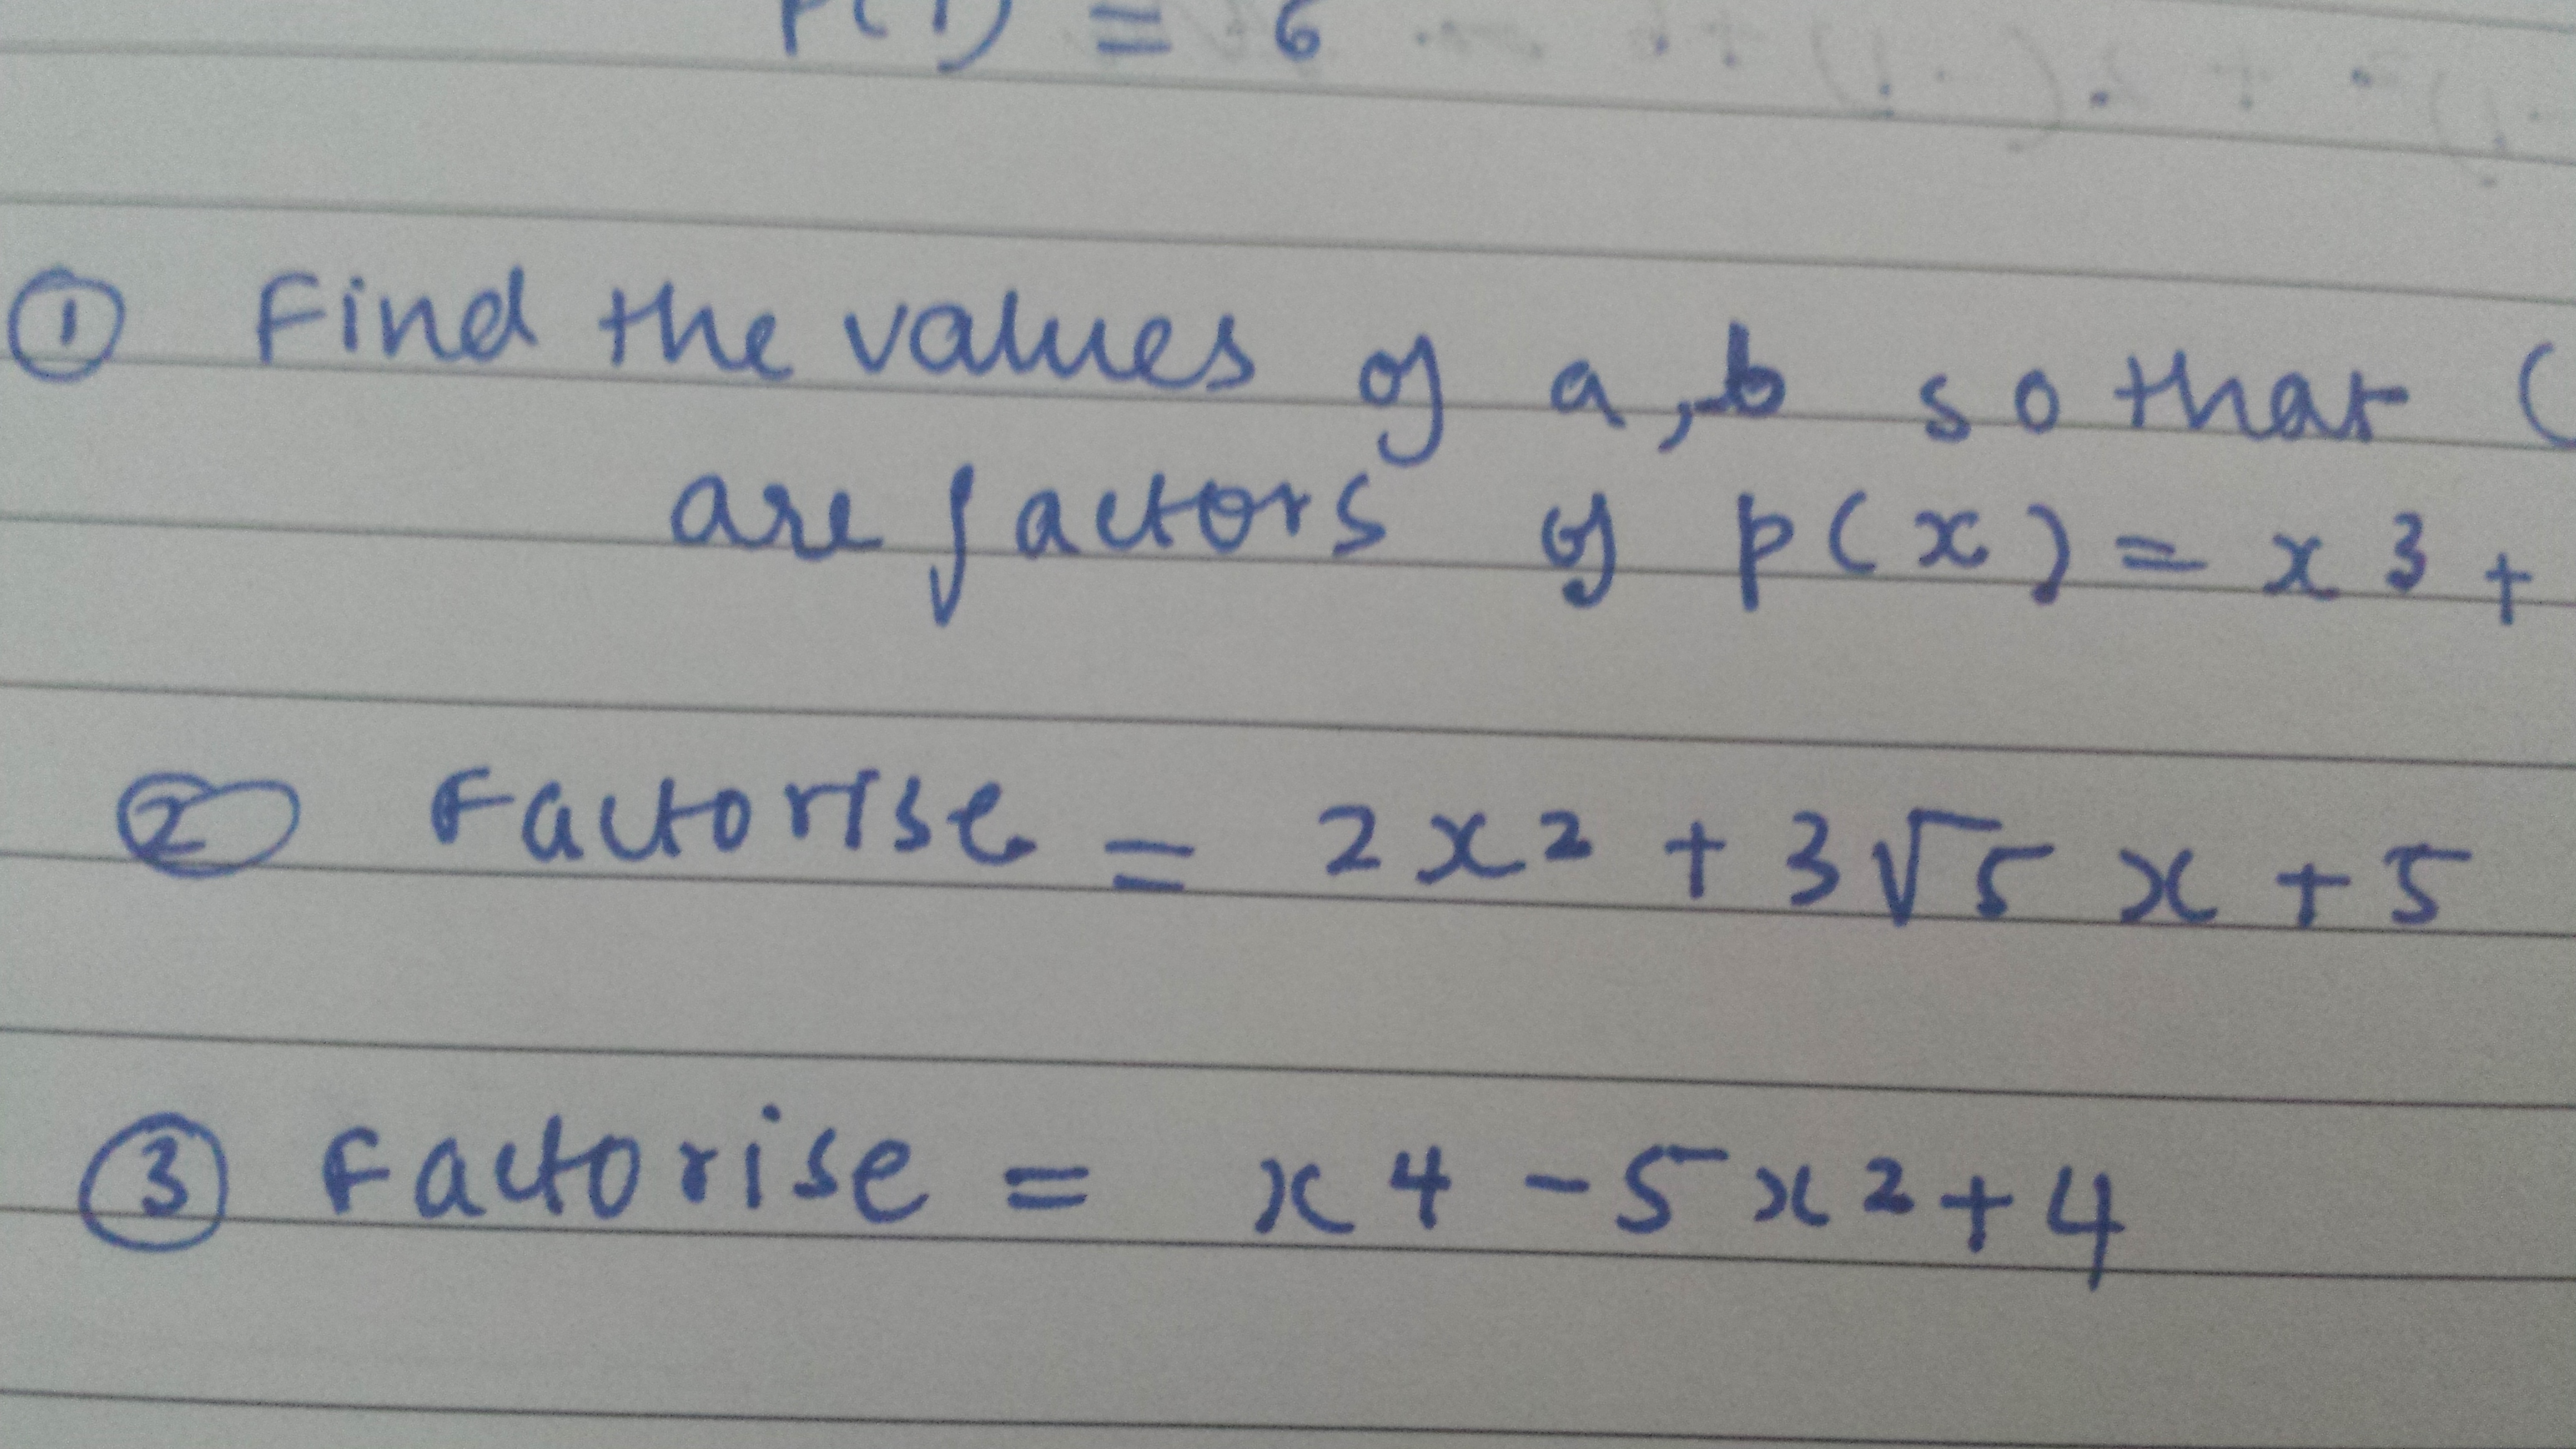 P(1) = 6
① Find the values of a, b so that (
are factors of p(x) = x3 +
② Factorise = 2x2 + 3√5 x + 5
③ Factorise = x4 - 5x2 + 4